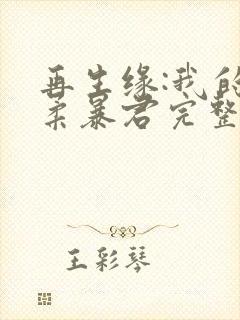 再生缘:我的
柔暴君完整
王彩琴